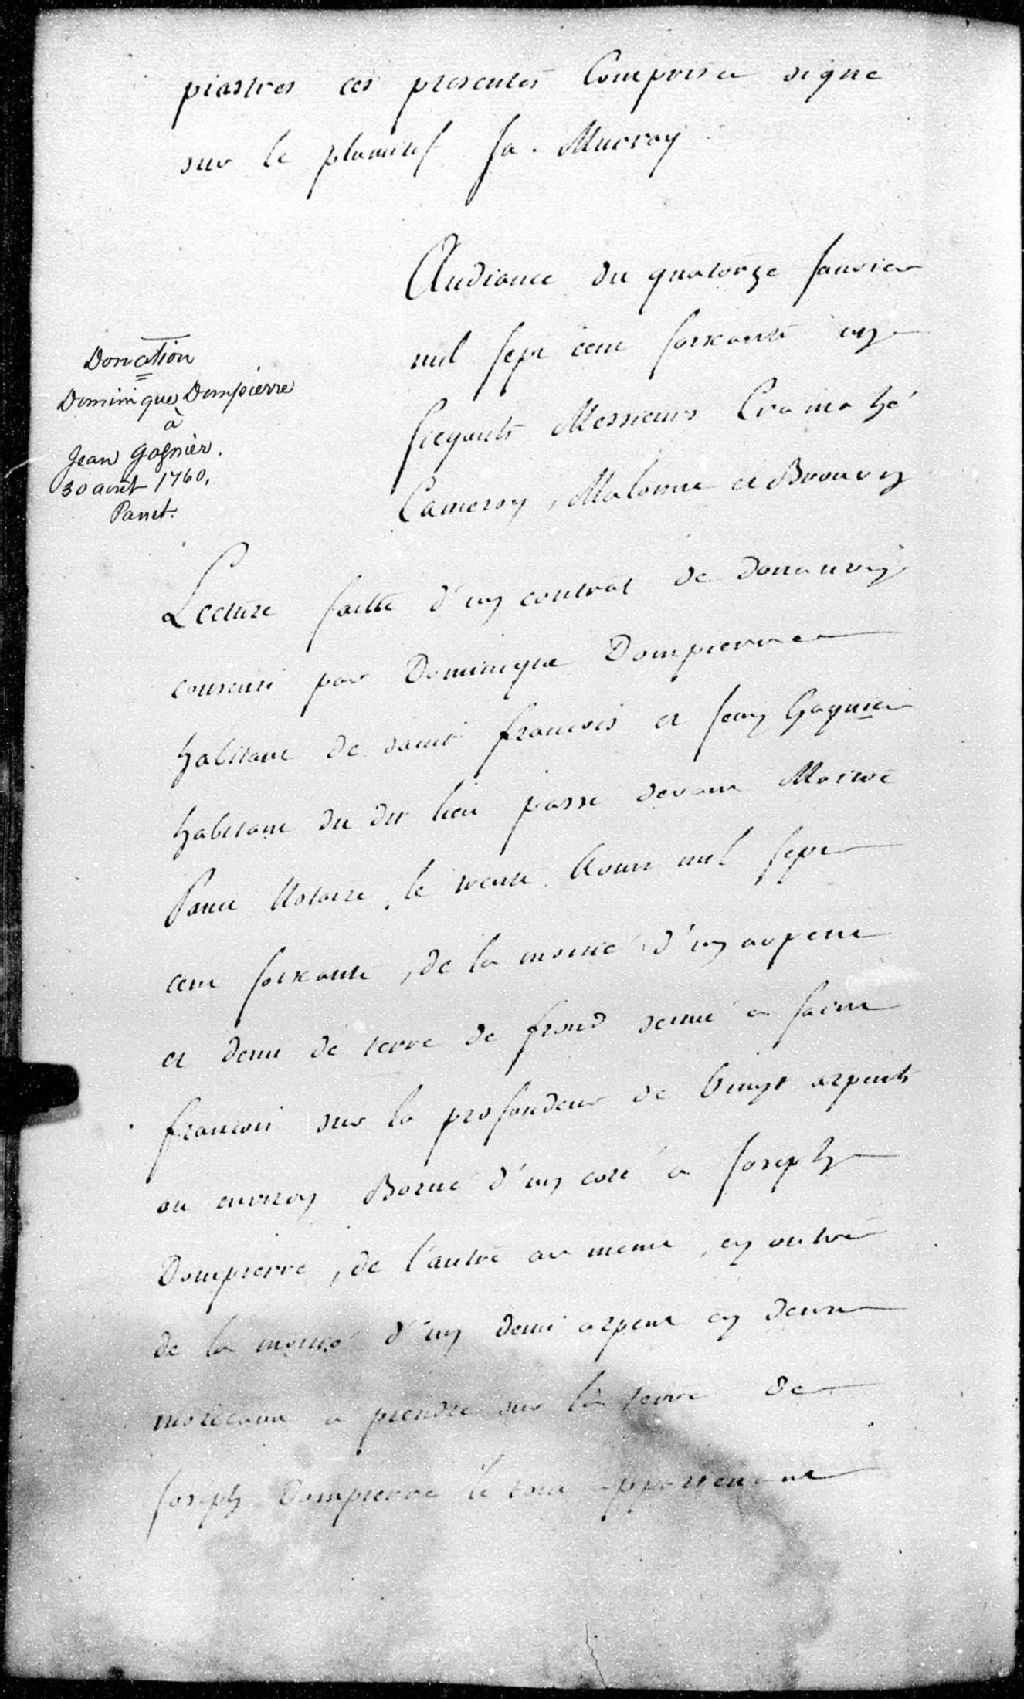 piastres ces presentes Comprise signe
sur le plumitif Ja. Murray
Audiance du quatorze Janvier
mil sept cent soixante un
siegants Messieurs Cramahé
Cameron, Malonne et Brown
Donation
Dominique Dompierre
à
Jean Gagnier.
30 août 1760.
Panet.
Lecture faitte d'un contrat de donation
consenti par Dominique Dompierre
habitant de saint francois et Jean Gagnier
habitant du dit lieu passé devant Maitre
Panet Notaire, le trente Aoust mil sept
cent soixante, de la moitié d'un arpent
et demi de terre de frond scitué a saint
francois sur la profondeur de vingt arpents
ou environ Borné d'un coté a Joseph
Dompierre, de l'autre au meme, en outre
de la moitié d'un demi arpent en deux
morceaux a prendre sur la terre de
Joseph Dompierre le tout appartenant